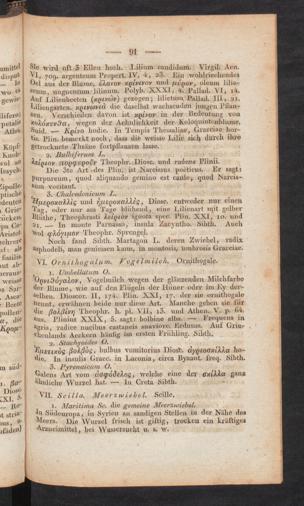 — 91 —
Sie wird oft 3 Ellen hoch. Lilium candidum. Virgil. Aen.
VI, 709. argenteum Propert. IV, 4, 23. Ein wohlriechendes
Oel aus der Blume, ἔλαιον κρίνινον und μύρον, oleum lilia-
ceum, unguentum lilinum. Polyb. XXXI, 4. Pallad. VI, 14.
Auf Lilienbeeten (κρινών) gezogen; lilietum Pallad. III, 21,
Liliengärten. κρινωνιά die daselbst wachsenden jungen Pflan-
zen. Verschieden davon ist κρίνον in der Bedeutung von
κολόκυνθα, wegen der Aehnlichkeit der Koloquintenblume.
Suid. — Κρίνο hodie. In Templis Thessaliae, Graeciae hor-
tis. Plin. bemerkt noch, dass die weisse Lilie sich durch ihre
getrocknete Thräne fortpflanzen lasse.
2. Bulbiferum L.
λείριον πορφυροῦν Theophr. Diosc. und rubens Plinii.
Die 3te Art des Plin. ist Narcissus poëticus. Er sagt:
purpureum, quod aliquando gemino est caule, quod Narcis-
sum vocitant.
3. Chalcedonicum L.
Ἡμεροκαλλὶς und ἡμεροκαλλές, Diosc. entweder nur einen
Tag, oder nur am Tage blühend, eine Lilienart mit gelber
Blüthe, Theophrasti λείριον ignota spec. Plin. XXI, 10. und
11. — In monte Parnasso, insula Zacyntho. Sibth. Auch
wol φλόγιον Theophr. Sprengel.
Noch fand Sibth. Martagon L. deren Zwiebel, radix
asphodeli, man geniessen kann, in montosis, umbrosis Graeciae.
VI. Ornithogalum. Vogelmilch. Ornithogale.
1. Umbellatum O.
Ὀρνιθόγαλον, Vogelmilch wegen der glänzenden Milchfarbe
der Blume, wie auf den Flügeln der Hüner oder im Ey der-
selben. Dioscor. II, 174. Plin. XXI, 17. der sie ornithogale
nennt, erwähnen beide nur diese Art. Manche gehen sie für
die βολβίνη Theophr. h. pl. VII, 13. und Athen. V. p. 64.
aus. Plinius XXIX, 5. sagt: bolbine alba. — Frequens in
agris, radice nuribus castaneis suaviore. Erdnuss. Auf Grie-
chenlands Aeckern häufig im ersten Frühling blühend.
2. Stachyoides O.
Ἐμετικὸς βολβὸς, bulbus vomitorius Diosk. ἀγριοσκίλλα ho-
die. In insulis Graec. in Laconia, circa Byzant. freq. Sibth.
3. Pyrenaicum O.
Galens Art vom ἀσφόδελος, welche eine der σκίλλα ganz
ähnliche Wurzel hat. — In Creta Sibth.
VII. Scilla. Meerzwiebel. Scille.
1. Maritima Sc. die gemeine Meerzwiebel.
In Südeuropa, in Syrien an sandigen Stellen in der Nähe des
Meers. Die Wurzel frisch ist giftig, trocken ein kräftiges
Arzneimittel, bei Wassersucht u. s. w.